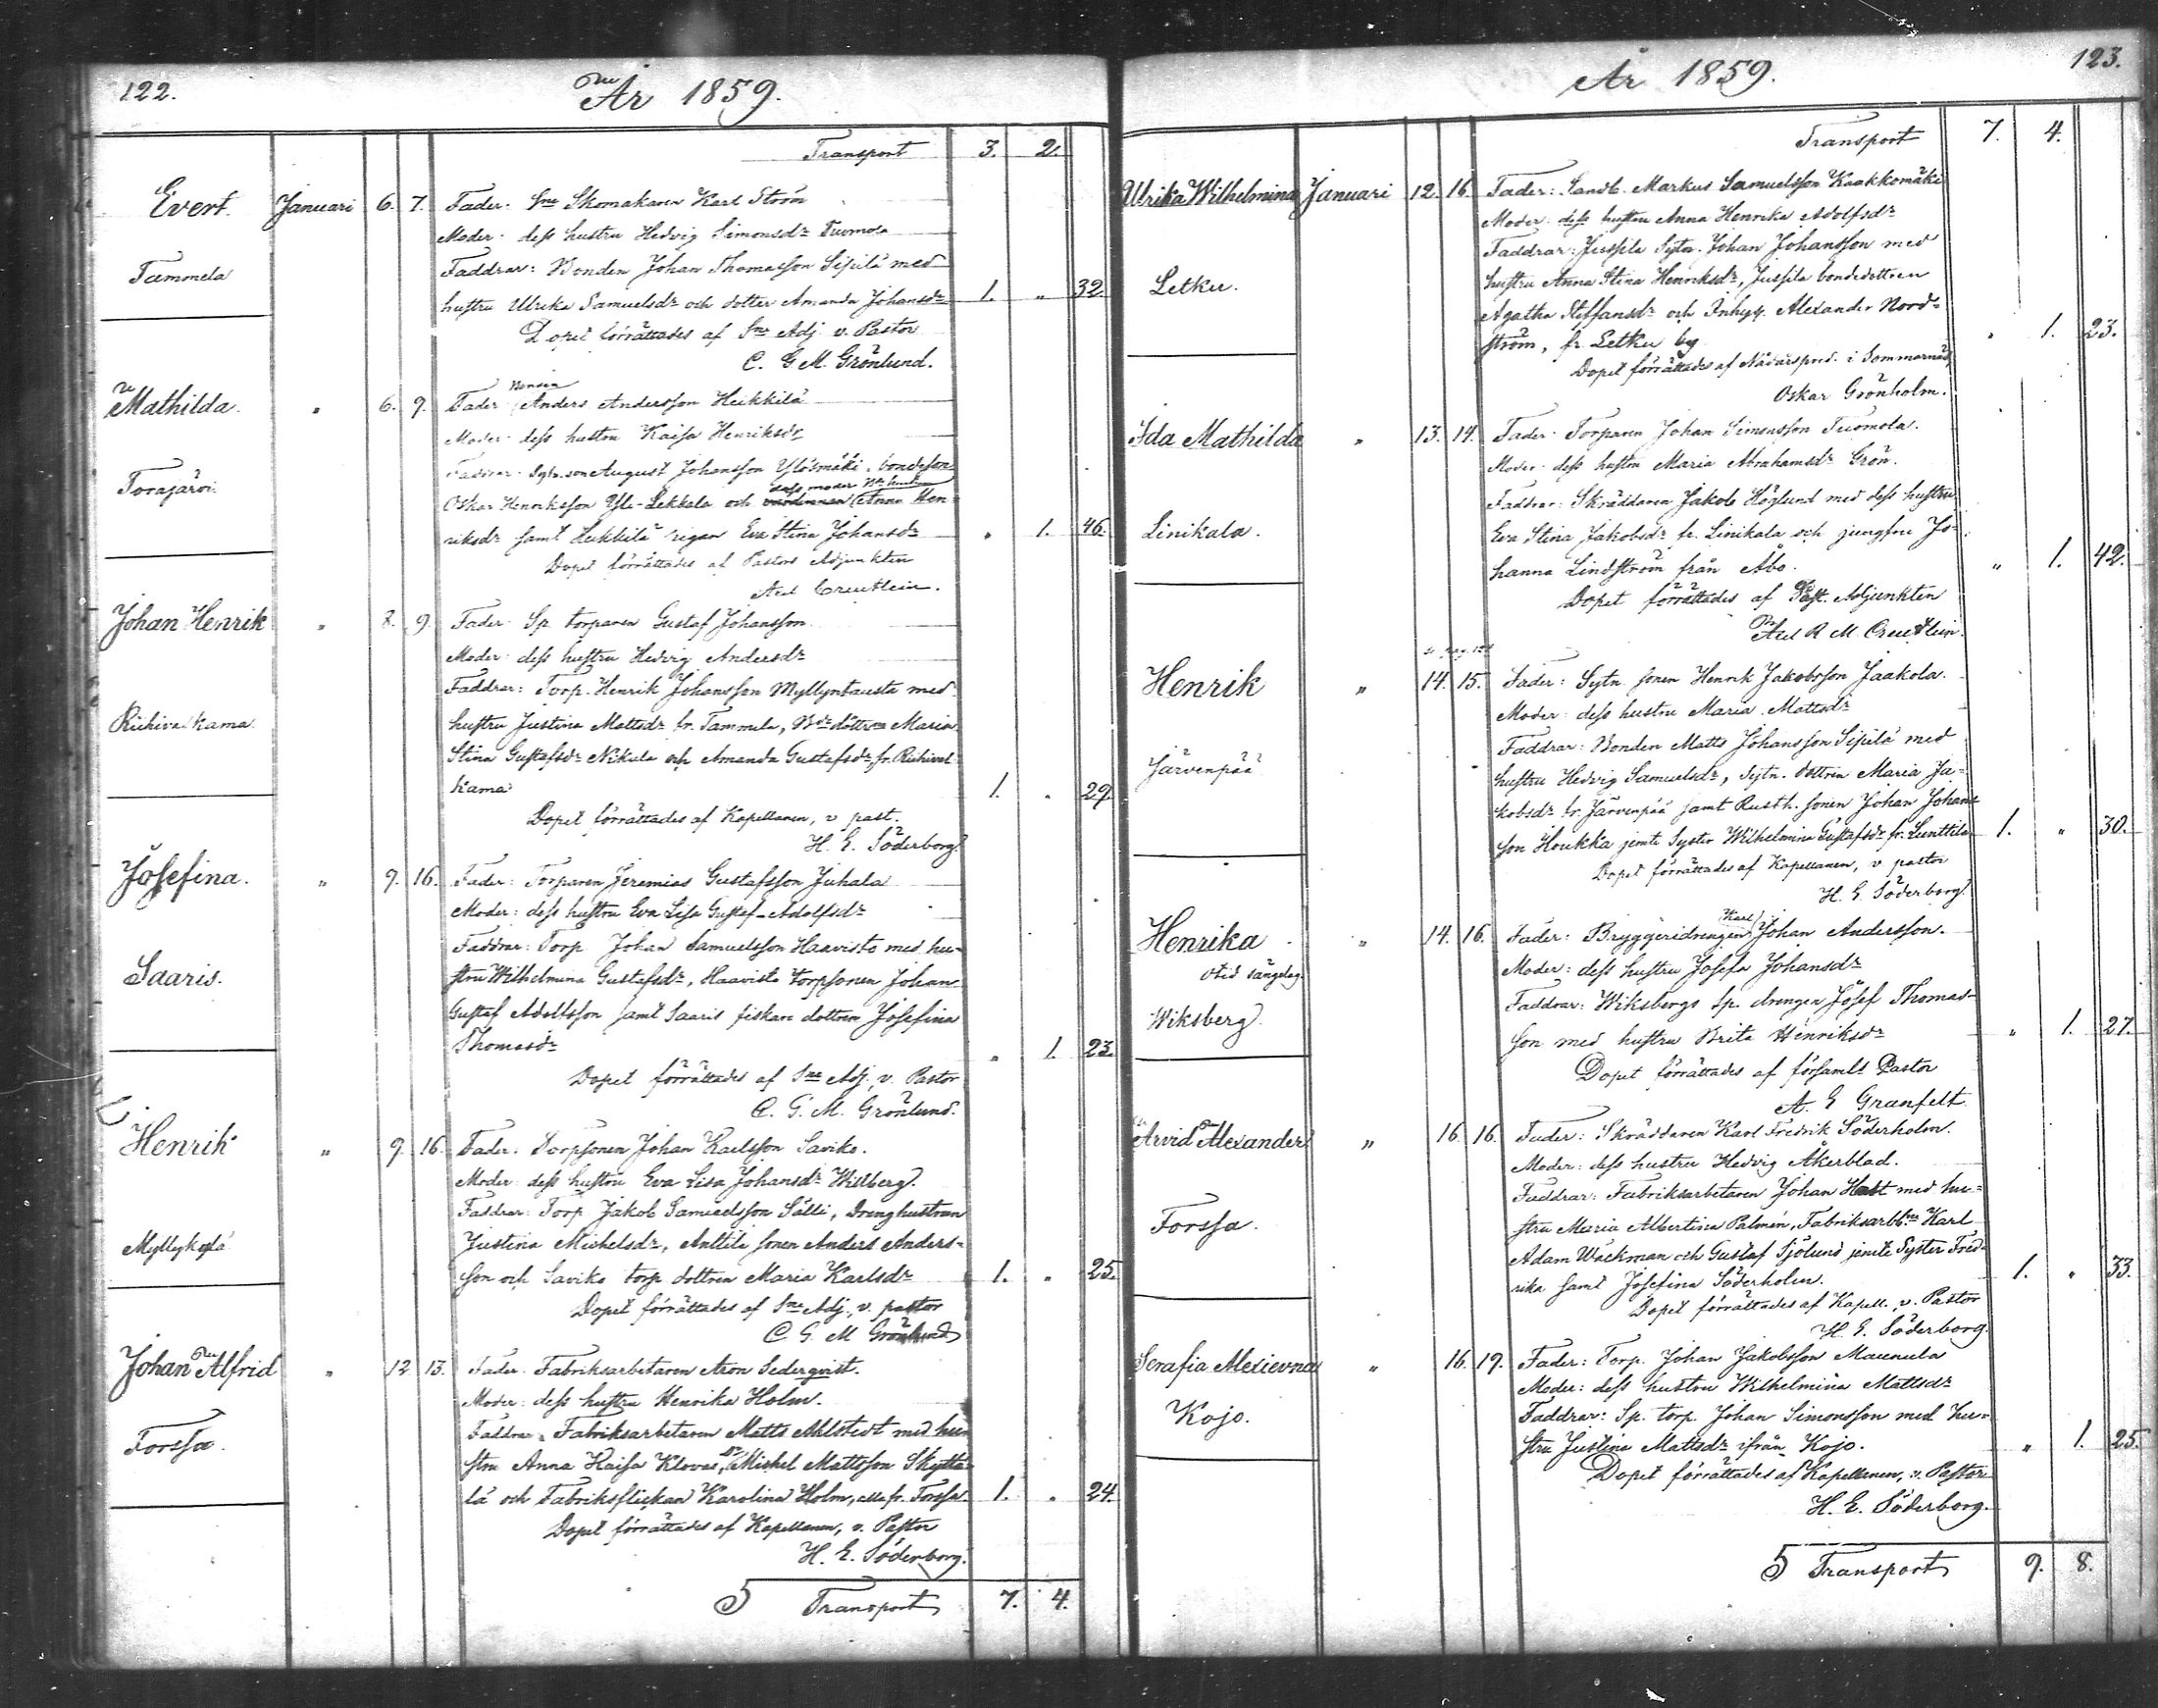 122.
År 1859.
Transport 3. 2.
Evert. Januari 6. 7. Fader: Snr Skomakaren Karl Ström
Moder: dess hustru Hedvig Simonsdr Tuomola
Tammela
Faddrar: Bonden Johan Thomasson Sipilä med
hustru Ulrika Samuelsdr och dotter Amanda Johansdr 1. " 32.
Dopet förrättades af Snr Adj. v. Pastor
C. G. M. Grönlund.
Mathilda. " 6. 9. Fader: Bonden Anders Andersson Heikkilä
Moder: dess hustru Kaisa Henriksdr
Torajärvi.
Faddrar: Sytn. son August Johansson Ylösmäki, bondeson
Oskar Henriksson Yli-Lekkala och dess moder Anna Hen
riksdr samt Heikkilä pigan Eva Stina Johansdr " 1. 46.
Dopet förrättades af Pastors Adjunkten
Axel Creutlein.
Johan Henrik " 8. 9. Fader: Sp. torparen Gustaf Johansson
Moder: dess hustru Hedvig Andersdr
Faddrar: Torp. Henrik Johansson Myllyntausta med
Riihivalkama.
hustru Justina Mattsdr fr. Tammela, Bde döttrarna Maria
Stina Gustafsdr Nikula och Amanda Gustafsdr, fr. Riihival
kama 1. " 29.
Dopet förrättades af Kapellanen, v. past.
H. E. Söderborg.
Josefina. " 9. 16. Fader: Torparen Jeremias Gustafsson Juhala
Moder: dess hustru Eva Lisa Gustaf-Adolfsdr
Faddrar: Torp. Johan Samuelsson Haavisto med hu-
Saaris.
stru Wilhelmina Gustafsdr, Haavisto torpsonen Johan
Gustaf Adolfsson samt Saaris fiskare dottren Josefina
Thomasdr " 1. 23.
Dopet förrättades af Snr Adj. v. Pastor
C. G. M. Grönlund.
Henrik " 9. 16. Fader: Torpsonen Johan Karlsson Saviko.
Moder: dess hustru Eva Lisa Johansdr Willberg.
Faddrar: Torp. Jakob Samuelsson Sälli, Drenghustrun
Myllykylä
Justina Michelsdr, Anttila sonen Anders Anders-
son och Saviko torp. dottren Maria Karlsdr 1. " 25.
Dopet förrättades af Snr Adj., v. pastor
C. G. M. Grönlund
Johan Alfrid " 12. 13. Fader: Fabriksarbetaren Aron Sederqvist.
Moder: dess hustru Henrika Holm.
Forssa.
Faddrar: Fabriksarbetaren Matts Ahlstedt med hu
stru Anna Kaisa Klovas, Michel Mattsson Skyttä-
lä och Fabriksflickan Karolina Holm, alla fr. Forssa. 1. " 24.
Dopet förrättades af Kapellanen, v. Pastor
H. E. Söderborg.
5 Transport 7. 4.
År 1859.
123.
Transport 7. 4.
Ulrika Wilhelmina Januari 12. 16. Fader: Landb. Markus Samuelsson Kaakkomäki
Moder: dess hustru Anna Henrika Adolfsdr
Faddrar: Jussila Sytn. Johan Johansson med
Letku.
hustru Anna Stina Henriksdr, Jussila bondedottren
Agatha Steffansdr och Inhys. Alexander Nord-
ström, fr. Letku by " 1. 23.
Dopet förrättades af Nådårspred. i Sommarnäs,
Oskar Grönholm.
Ida Mathilda " 13. 14. Fader: Torparen Johan Simonsson Tuomola.
Moder: dess hustru Maria Abrahamsdr Grön.
Faddrar: Skräddaren Jakob Höglund med dess hustru
Linikala.
Eva Stina Jakobsdr fr. Linikala och jungfru Jo-
hanna Lindström från Åbo. " 1. 42.
Dopet förrättades af Past. Adjunkten
Axel R. M. Creutlein.
Henrik " 14. 15. Fader: Sytn. sonen Henrik Jakobsson Jaakola.
Moder: dess hustru Maria Mattsdr
Faddrar: Bonden Matts Johansson Sipilä med
Järvenpää
hustru Hedvig Samuelsdr, Sytn. dottren Maria Ja-
kobsdr fr. Järvenpää samt Rusth. sonen Johan Johans
son Houkka jemte Syster Wilhelmina Gustafsdr fr. Lunttila 1. " 30.
Dopet förrättades af Kapellanen, v. pastor
H. E. Söderborg.
Henrika " 14. 16. Fader: Bryggeridrengen Karl Johan Andersson.
otid sängelag.
Moder: dess hustru Josefa Johansdr
Wiksberg.
Faddrar: Wiksbergs Sp. drengen Josef Thomas-
son med hustru Brita Henriksdr " 1. 27.
Dopet förrättades af församls Pastor
A. E. Granfelt.
Arvid Alexander " 16. 16. Fader: Skräddaren Karl Fredrik Söderholm.
Moder: dess hustru Hedvig Åkerblad.
Faddrar: Fabriksarbetaren Johan Hast med hu-
Forssa.
stru Maria Albertina Palmén, Fabriksarbb:ne Karl
Adam Wäckman och Gustaf Sjölund jemte Syster Fred-
rika samt Josefina Söderholm. 1. " 33.
Dopet förrättades af Kapell. v. Pastor
H. E. Söderborg.
Serafia Alexievna " 16. 19. Fader: Torp. Johan Jakobsson Maunula
Moder: dess hustru Wilhelmina Mattsdr
Kojo.
Faddrar: Sp. torp. Johan Simonsson med hu-
stru Justina Mattsdr ifrån Kojo. " 1. 25.
Dopet förrättades af Kapellanen, v. Pastor
H. E. Söderborg.
5 Transport 9. 8.